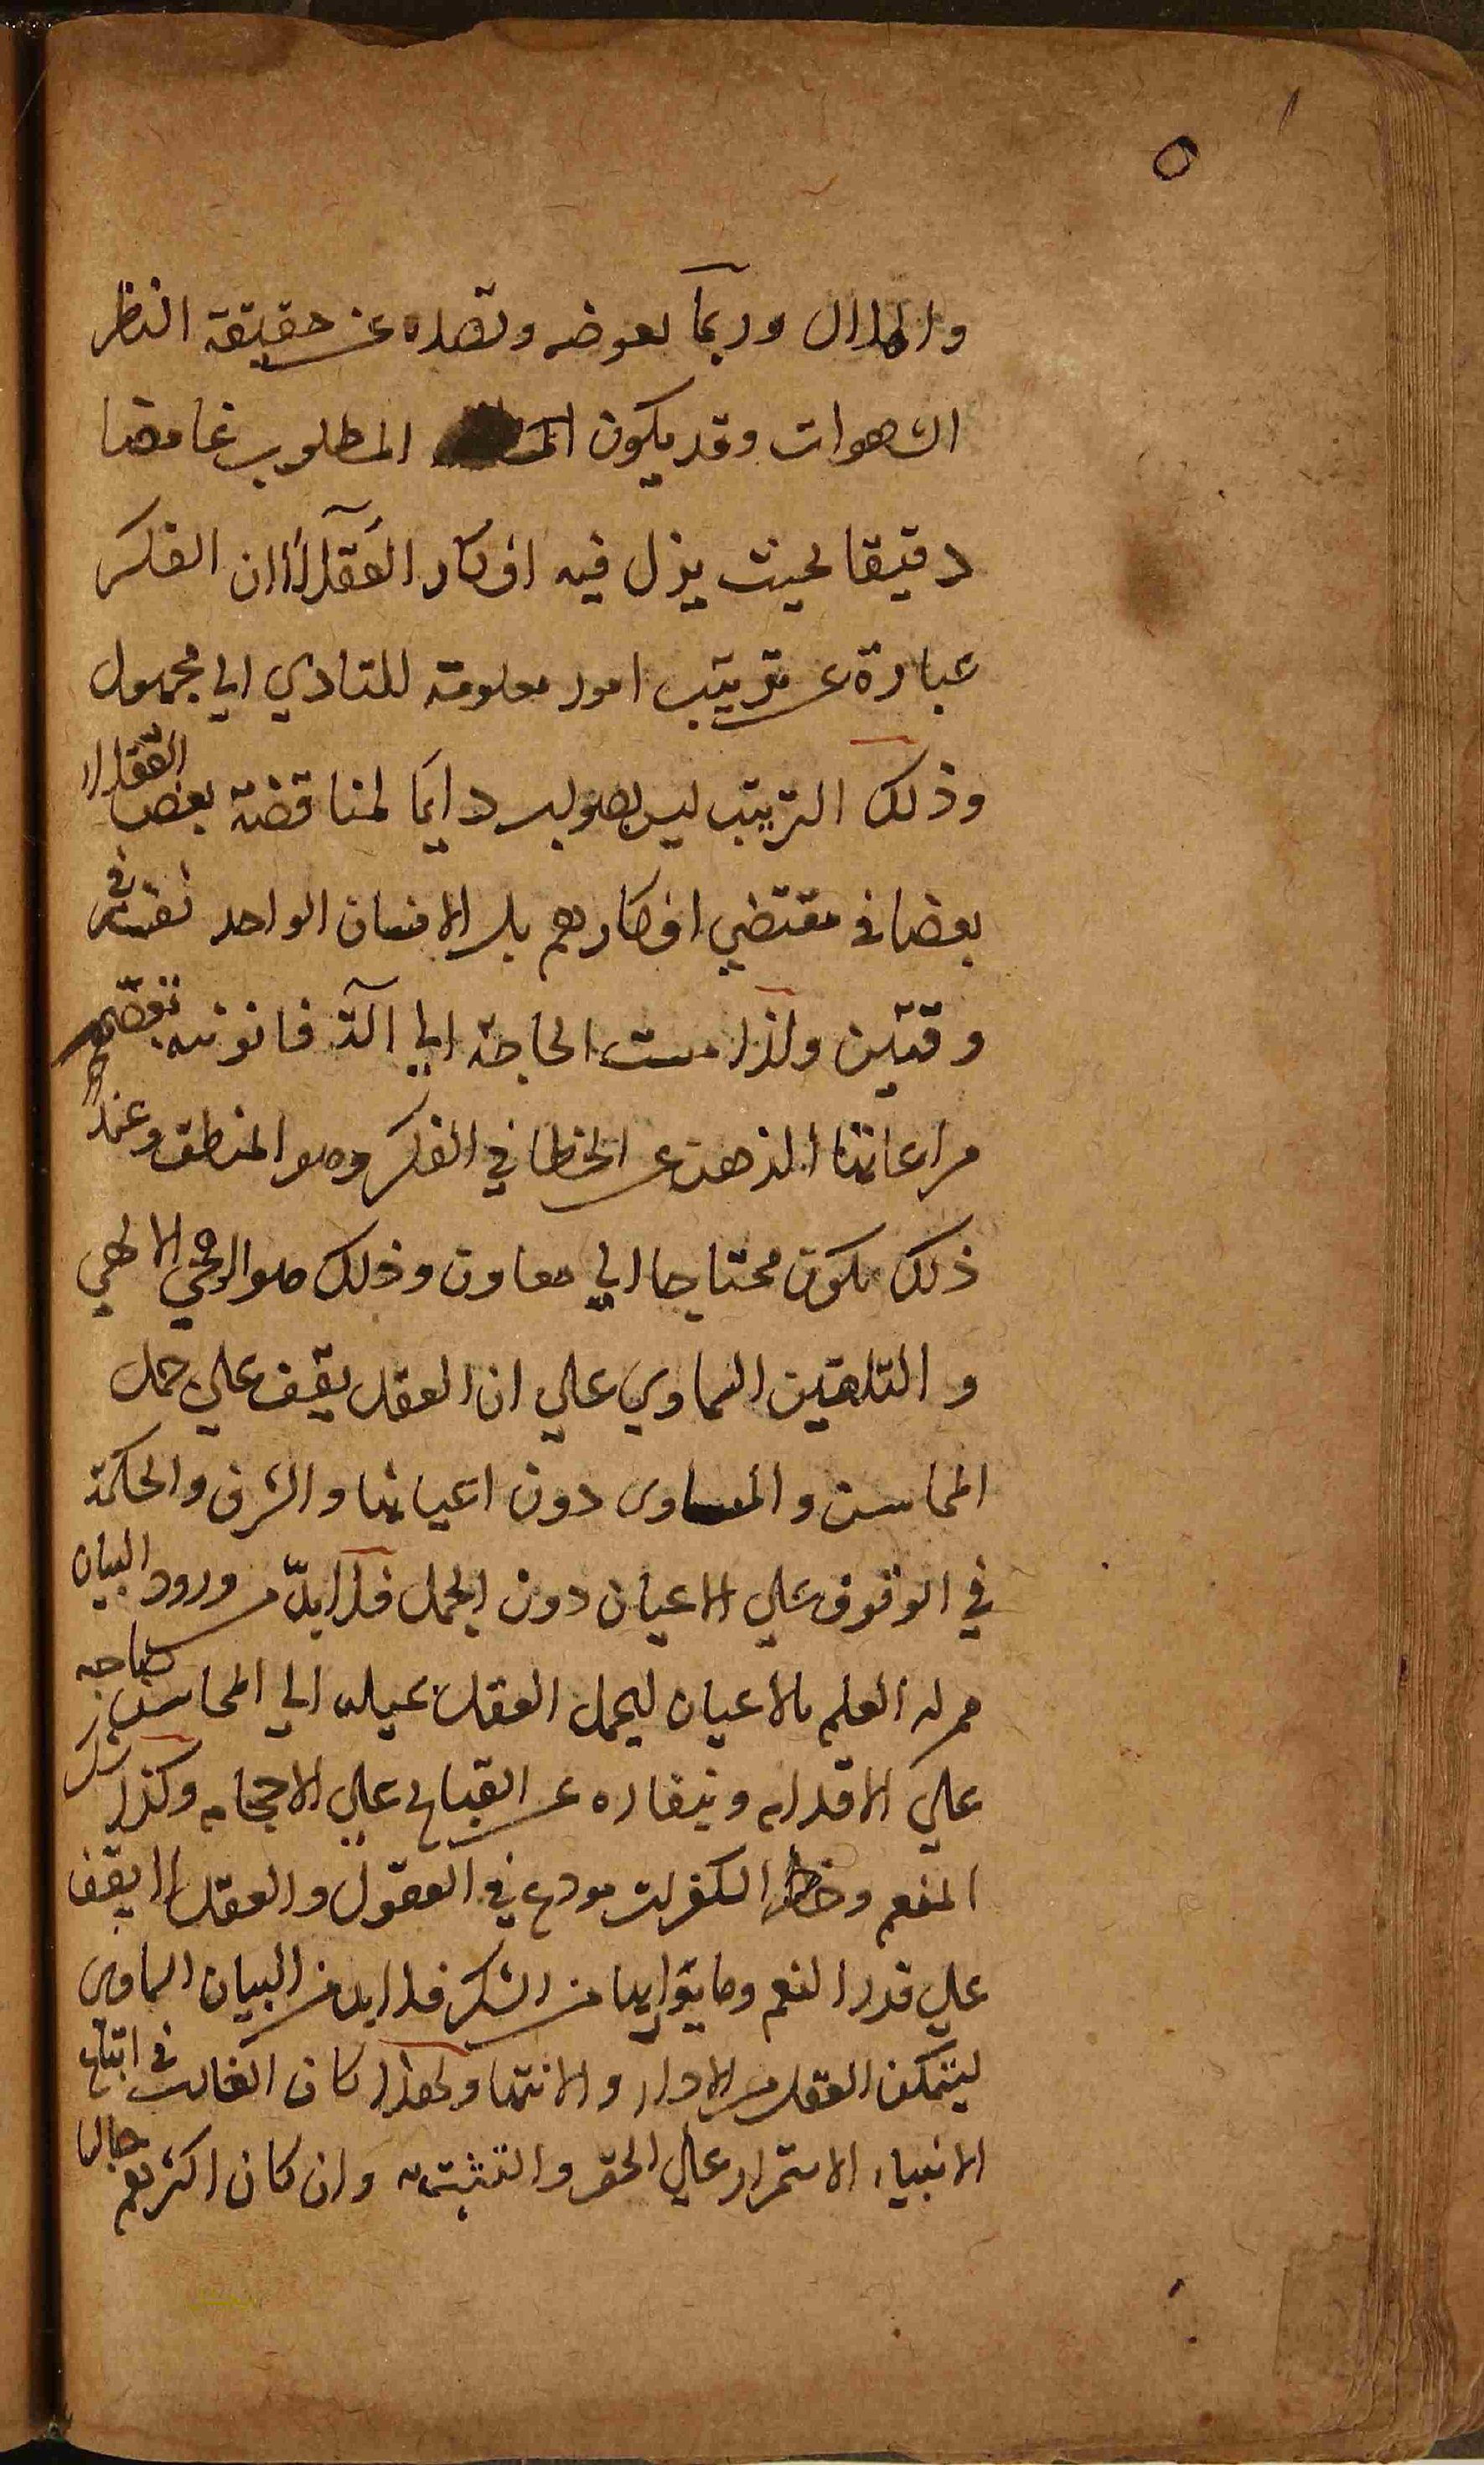 ٥
والملال وربما يعوضه وتصده عن حقيقة النظر
الشهوات وقد يكون المطلوب غامضا
دقيقا بحيث يزل فيه افكار العقلاء اذ ان الفكر
عبارة عن ترتيب امور معلومة للتادي الي مجهول
وذلك الترتيب ليس بصواب دايما لمناقضة بعض العقلاء
بعضا في مقتضي افكارهم بل الانسان الواحد نفسه في
وقتين ولذا مست الحاجة الي آلة قانونيه تعصم
مراعاتها الذهن عن الخطا في الفكر وهو المنطق وعند
ذلك يكون محتاجا الي معاون وذلك هو الوحي الالهي
والتلقين السماوي علي ان العقل يقف علي جمل
المحاسن والمساوى دون اعيانها والشرف والحكمة
في الوقوف علي الاعيان دون الجمل فلا بدّ من ورود البيان
ممن له العلم بالاعيان ليحمل العقل بميله الي المحاسن صاحبه
علي الاقدام وبنفاره عن القبايح علي الاحجام وكذا شكر
المنعم وحظر الكفران مودع في العقول والعقل لا يقف
علي قدر النعم وما يوازيها من الشكر فلا بد من البيان السماوى
ليتمكن العقل من الاداء والانتها ولهذا كان الغالب في اتباع
الانبياء الاستمرار علي الحق والتثبت به وان كان اكثرهم جهالا